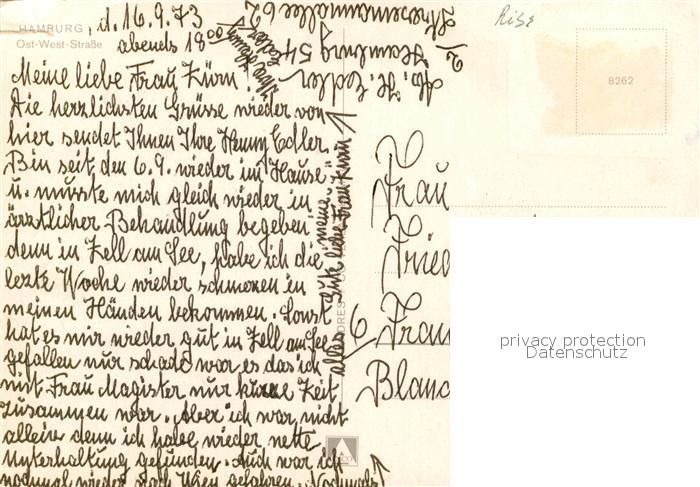 HAMBURG, d. 16.9.73
Ost-West-Straße
abends 18⁰⁰
Meine liebe Frau Kürn!
Die herzlichsten Grüsse wieder von
hier sendet Ihnen Ihre Henny Edler.
Bin seit den 6.9. wieder im Hause
u. musste mich gleich wieder in
ärztlicher Behandlung begeben
denn in Zell am See, habe ich die
lezte Woche wieder schmerzen in
meinen Händen bekommen. Sonst
hat es mir wieder gut in Zell am See
gefallen nur schade war es das ich
mit Frau Magister nur kurze Zeit
zusammen war. Aber ich war nicht
allein denn ich habe wieder nette
Unterhaltung gefunden. Auch war ich
nochmal wieder nach Wien gefahren. Nochmals
alles Gute liebe Frau Kürn
meine
Ihre Henny
Edler
H. Edler
2 Hamburg 54
62
Rise
8262
Frau
Fried
Frau
Blanc
privacy protection
Datenschutz